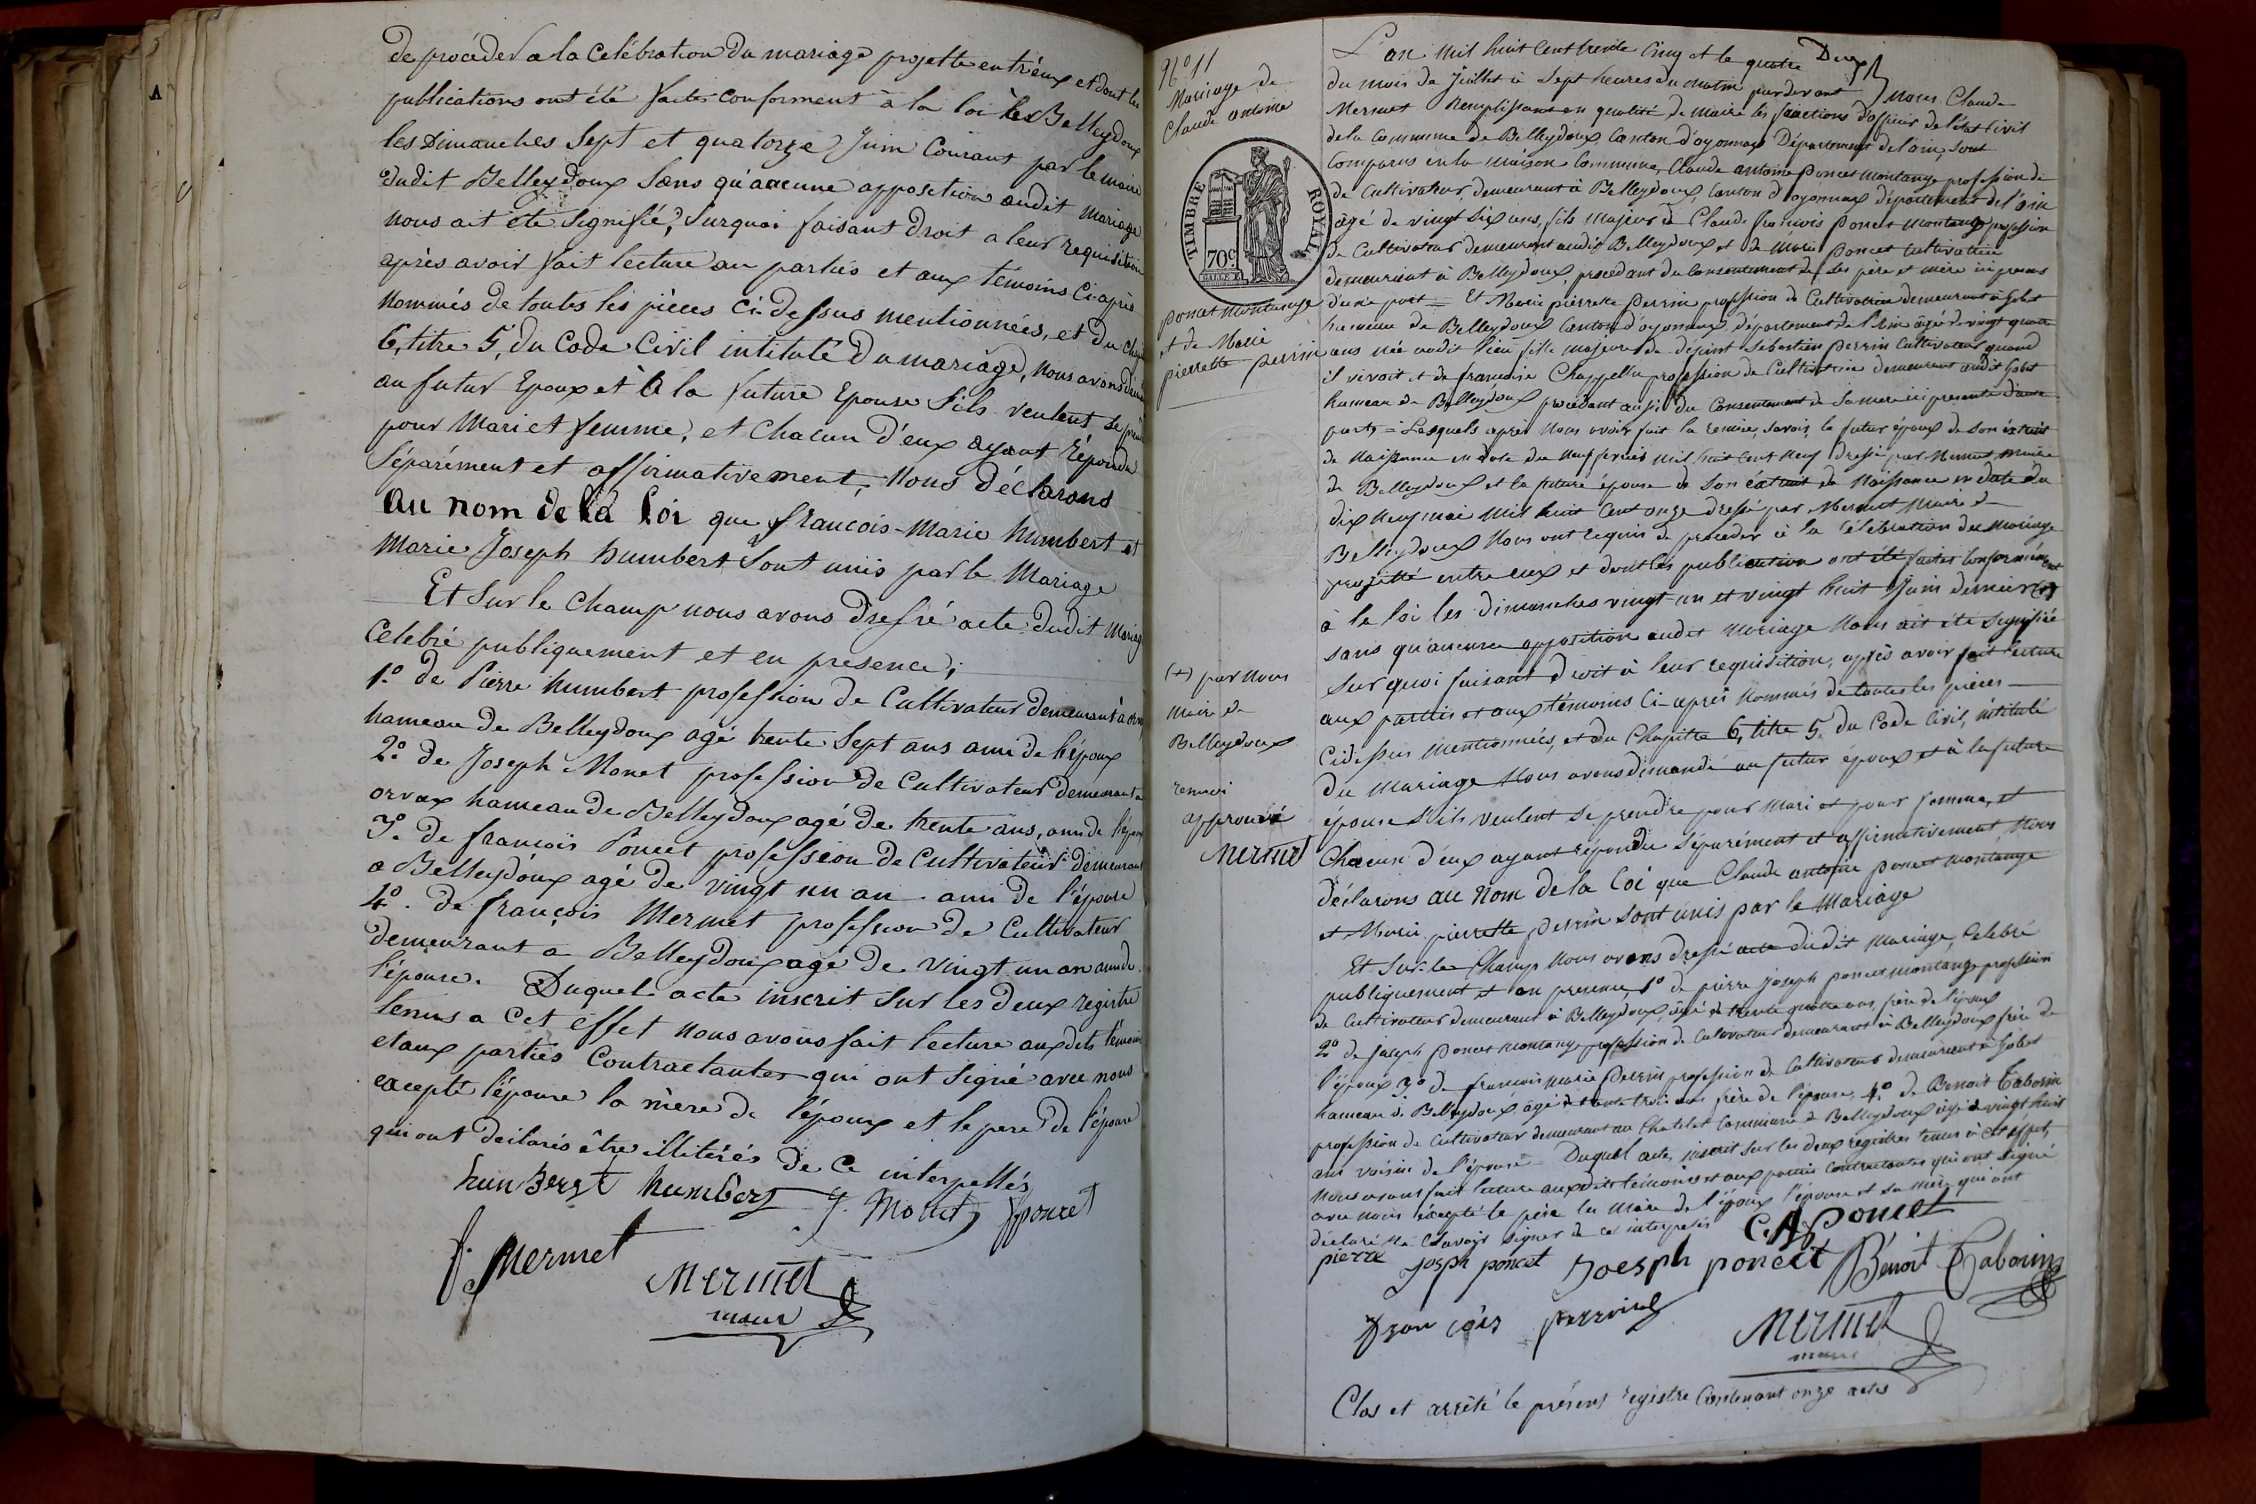 de procéder a la Célébration du mariage projetté entr'eux et dont les
publications ont été faites conforment à la loi à les Belleydoux
les Dimanches Sept et quatorze Juin Courant par le maire
dudit Belleydoux Sans qu'aucune opposition audit mariage
nous ait été Signifié, Surquoi faisant Droit a leur requisition
après avoir fait lecture au parties et aux témoins Ci-après
Nommés de toutes les pièces Ci-Dessus mentionnées, et Du Chap
6, titre 5, Du Code Civil intitulé Du mariage, Nous avons de
au futur Epoux et à la future Epouse S'ils veulent se
pour Mari et femme, et Chacun D'eux ayant Répondu
Séparément et affirmativement, Nous Déclarons
au nom de la loi que françois-Marie humbert et
Marie Joseph humbert Sont unis par le Mariage
Et Sur le Champ nous avons Dressé acte dudit Mariag
Célebré publiquement et en presence;
1° de Pierre humbert profession de Cultivateur demeurant à
hameau de Belleydoux agé trente Sept ans ami de l'époux
2° de Joseph Monet profession de Cultivateur demeurant a
orvax hameau de Belleydoux agé de trente ans, ami de l'époux
3° de françois Poncet profession de Cultivateur demeurant
a Belleydoux agé de vingt un an ami de l'épouse
4° de françois Mermet profession de Cultivateur
demeurant a Belleydoux agé de vingt un an ami de
l'épouse. Duquel acte inscrit Sur les deux registre
tenus a Cet éffet nous avons fait lecture auxdits témoins
et aux parties Contractantes qui ont Signé avec nous
excepté l'épouse la mère de l'époux et le pere de l'épouse
qui ont déclarés être illitérés de Ce interpellés
humbert humbert J. Monet fponcet
f. Mermet
Mermet
maire
N° 11
Mariage de
Claude antoine
TIMBRE ROYAL
70c
poncet montange
et de Marie
pierrette perrin
(+) par nous
maire de
Belleydoux
renvoi
approuvé
Mermet
L'an mil huit Cent trente Cinq et le quatre
du mois de Juillet à Sept heures du matin pardevant Nous Claude
Mermet Remplissant en qualité de Maire les fonctions d'officier de l'état Civil
de la Commune de Belleydoux Canton d'oyonnax Département de l'ain, Sont
Comparus en la maison Commune, Claude antoine Poncet Montange profession de
de Cultivateur, demeurant à Belleydoux, Canton d'oyonnax département de l'ain
âgé de vingt Six ans, fils majeur de Claude françois Poncet Montange profession
de Cultivateur demeurant audit Belleydoux et de Marie Poncet Cultivatrice
demeurant à Belleydoux, procédant du Consentement de Ses père et mère
d'une part = Et Marie pierrette perrin profession de Cultivatrice demeurant à Gobet
hameau de Belleydoux Canton d'oyonnax, département de l'ain âgée de vingt quatre
ans née audit lieu fille majeure de défunt Sebastien perrin Cultivateur quand
il vivoit et de françoise Chappellu profession de Cultivatrice demeurant audit Gobet
hameau de Belleydoux procédant aussi du Consentement de Sa mere ici presente d'autre
part = Lesquels apres Nous avoir fait la remise, Savoir, le futur époux de Son extrait
de Naissance en date du Neuf fevrier mil huit Cent Neuf Dressé par Mermet maire
de Belleydoux et la future épouse de Son extrait de Naissance en date du
dix Neuf mai Mil huit Cent onze dressé par Mermet Maire de
Belleydoux Nous ont requis de proceder à la Célébration du Mariage
projetté entre eux et dont les publication ont été faites Conformément
à la loi les dimanches vingt-un et vingt huit Juin dernier (+)
Sans qu'aucune opposition audit Mariage Nous ait été Signifiée
Sur quoi faisant droit à leur requisition, après avoir fait lecture
aux parties et aux témoins Ci-après Nommés de toutes les pièces
Cidessus Mentionnées, et du Chapitre 6, titre 5. du Code Civil, intitulé
Du Mariage Nous avons demandé au futur époux et à la future
épouse S'ils veulent Se prendre pour Mari et pour femme, et
Chacun d'eux ayant répondu Séparément et affirmativement Nous
Déclarons au Nom de la loi que Claude antoine poncet montange
et Marie pierrette perrin Sont unis par le Mariage
Et Sur-le Champ Nous avons dressé acte dudit Mariage, Célébré
publiquement et en presence, 1° de pierre Joseph poncet montange profession
de Cultivateur demeurant à Belleydoux, âgé de trente quatre ans, frère de l'époux
2° de Joseph Poncet Montange profession de Cultivateur demeurant à Belleydoux frère de
l'époux 3° de francois Marie Perrin profession de Cultivateur demeurant à Gobet
hameau de Belleydoux âgé de trente trois ans frère de l'épouse, 4° de Benoit Tabourin
profession de Cultivateur demeurant au Chatelet Commune de Belleydoux âgé de vingt huit
ans voisin de l'épouse. Duquel acte, inscrit Sur les deux registres tenus à Cet effet,
Nous avons fait lecture auxdits témoins et aux parties Contractantes qui ont Signé
avec nous excepté le père la Mère de l'époux l'épouse et Sa Mère qui ont
déclaré Ne Savoir Signer de Ce interpellés
C A Poncet
pierre Joseph poncet Joesph poncet Bénoit Tabourin
fran cois perrin
Mermet
maire
Clos et arrêté le présent registre Contenant onze actes